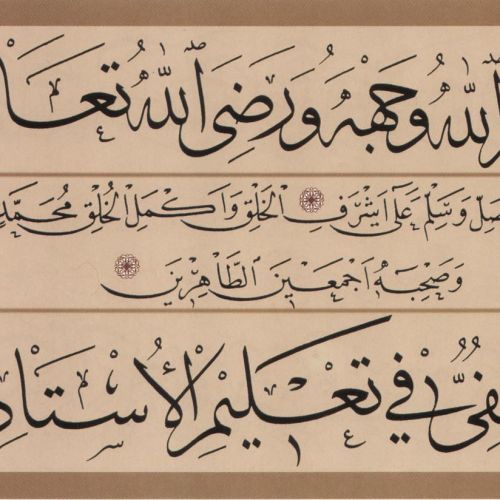 الله وَجْهَهُ وَرَضِيَ اللهُ تَعَا
صِلِّ وَسَلِّمْ عَلَى أَشْرَفِ الْخَلْقِ وَأَكْمَلِ الْخُلْقِ مُحَمَّدٍ
وَصَحْبِهِ أَجْمَعِينَ الطَّاهِرِينَ
فِي تَعْلِيمِ الْأُسْتَاذِ